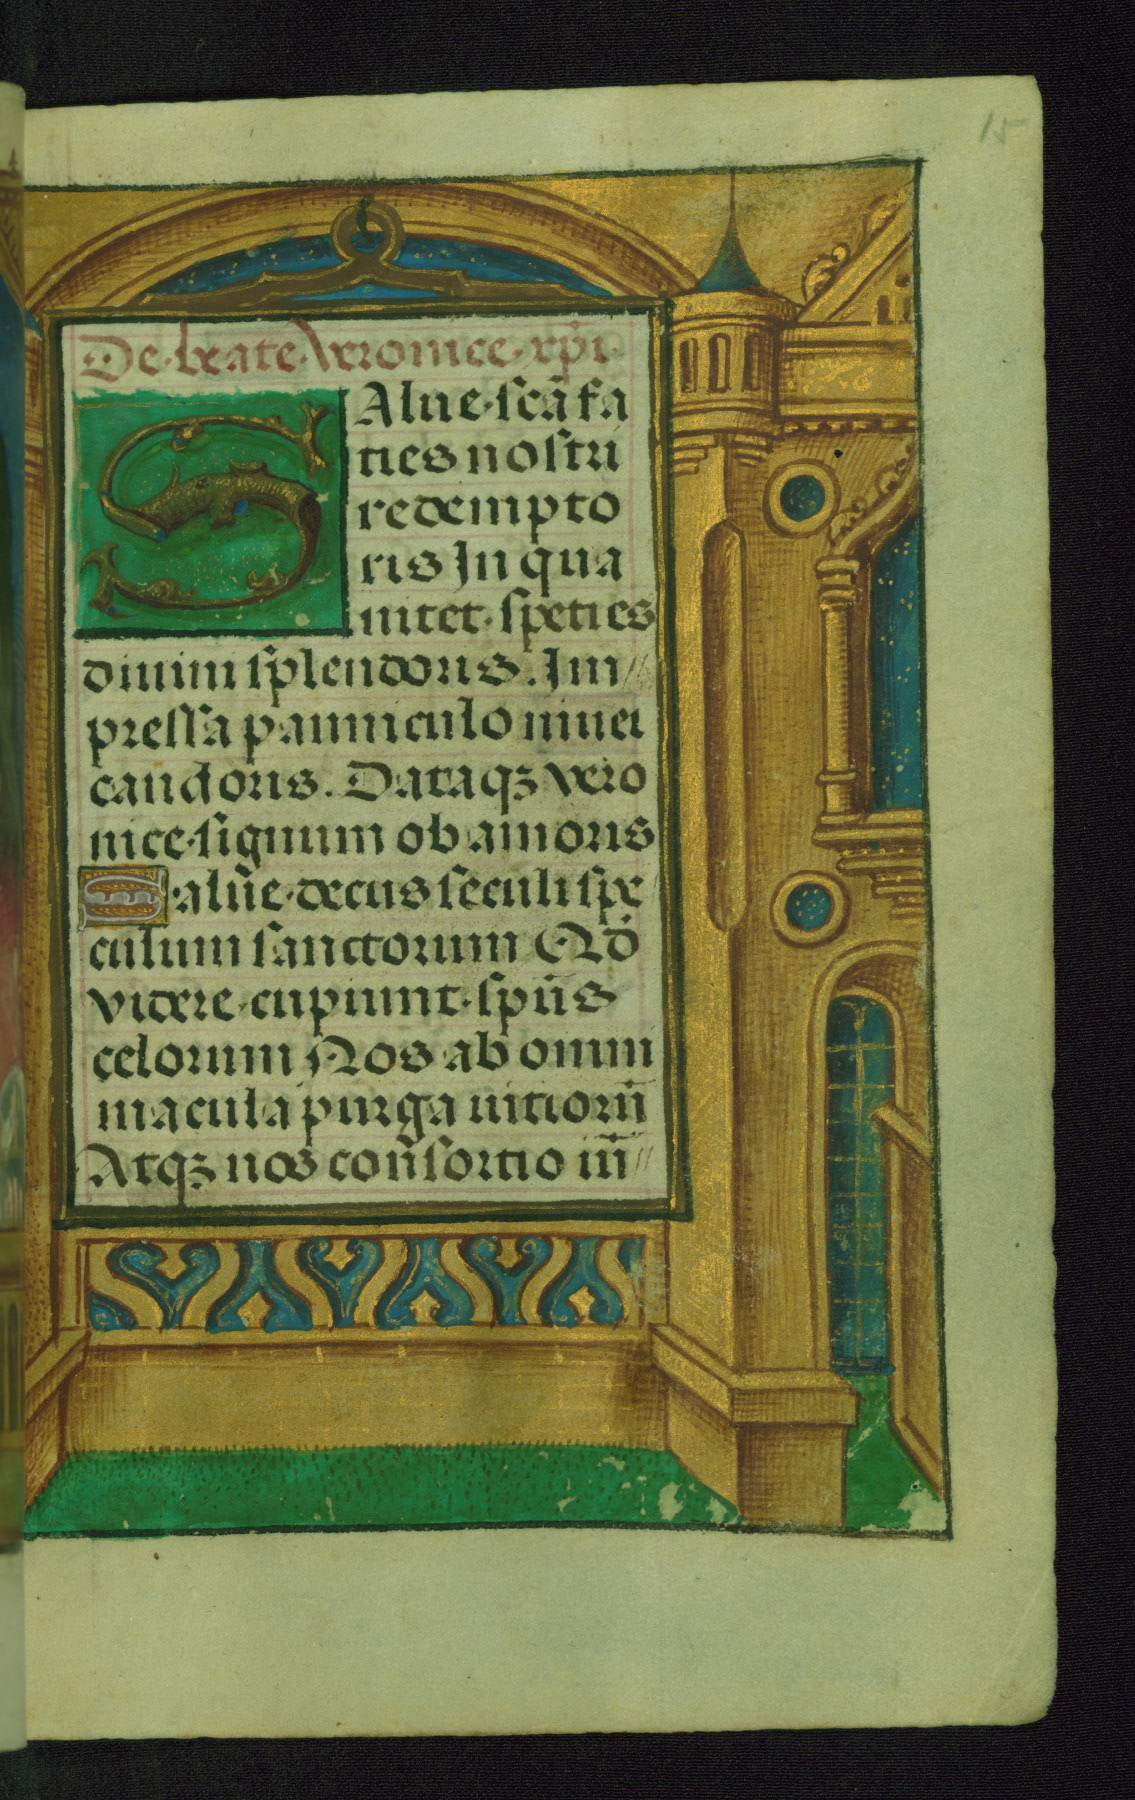 15
De·beate·Veronice·xp̄i·
SAlue·scā fa
ties nostri
redempto
ris In qua
nitet·speties
diuini splendoris. Im//
pressa panniculo niuei
candoris. Dataqȝ vero
nice·signum ob amoris
Salūe·decus seculi spe
culum sanctorum Qd̄
videre·cupiunt·spūs
celorum Nos ab omni
macula purga uitiorū
Atqȝ nos con̄sortio iū̄//